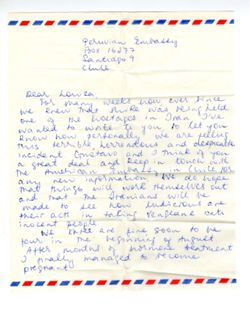 Peruvian Embassy
Box 16277
Santiago 9
Chile
Dear Louisa
For many weeks now ever since
we knew that Mike was being held
one of the hostages in Iran I've
wanted to write to you to let you
know how personally we are feeling
this terrible, horrendous and despicable
incident. Gustavo and I think of you
a great deal and keep in touch with
the American Embassy in Chile for
any new information. We do hope
that things will work themselves out
and that the Iranians will be
made to see how ludicrous are
their acts in taking vengeance out
inocent people.
We three are fine soon to be
four in the beginning of August
After months of hormone treatment
I finally managed to become
pregnant